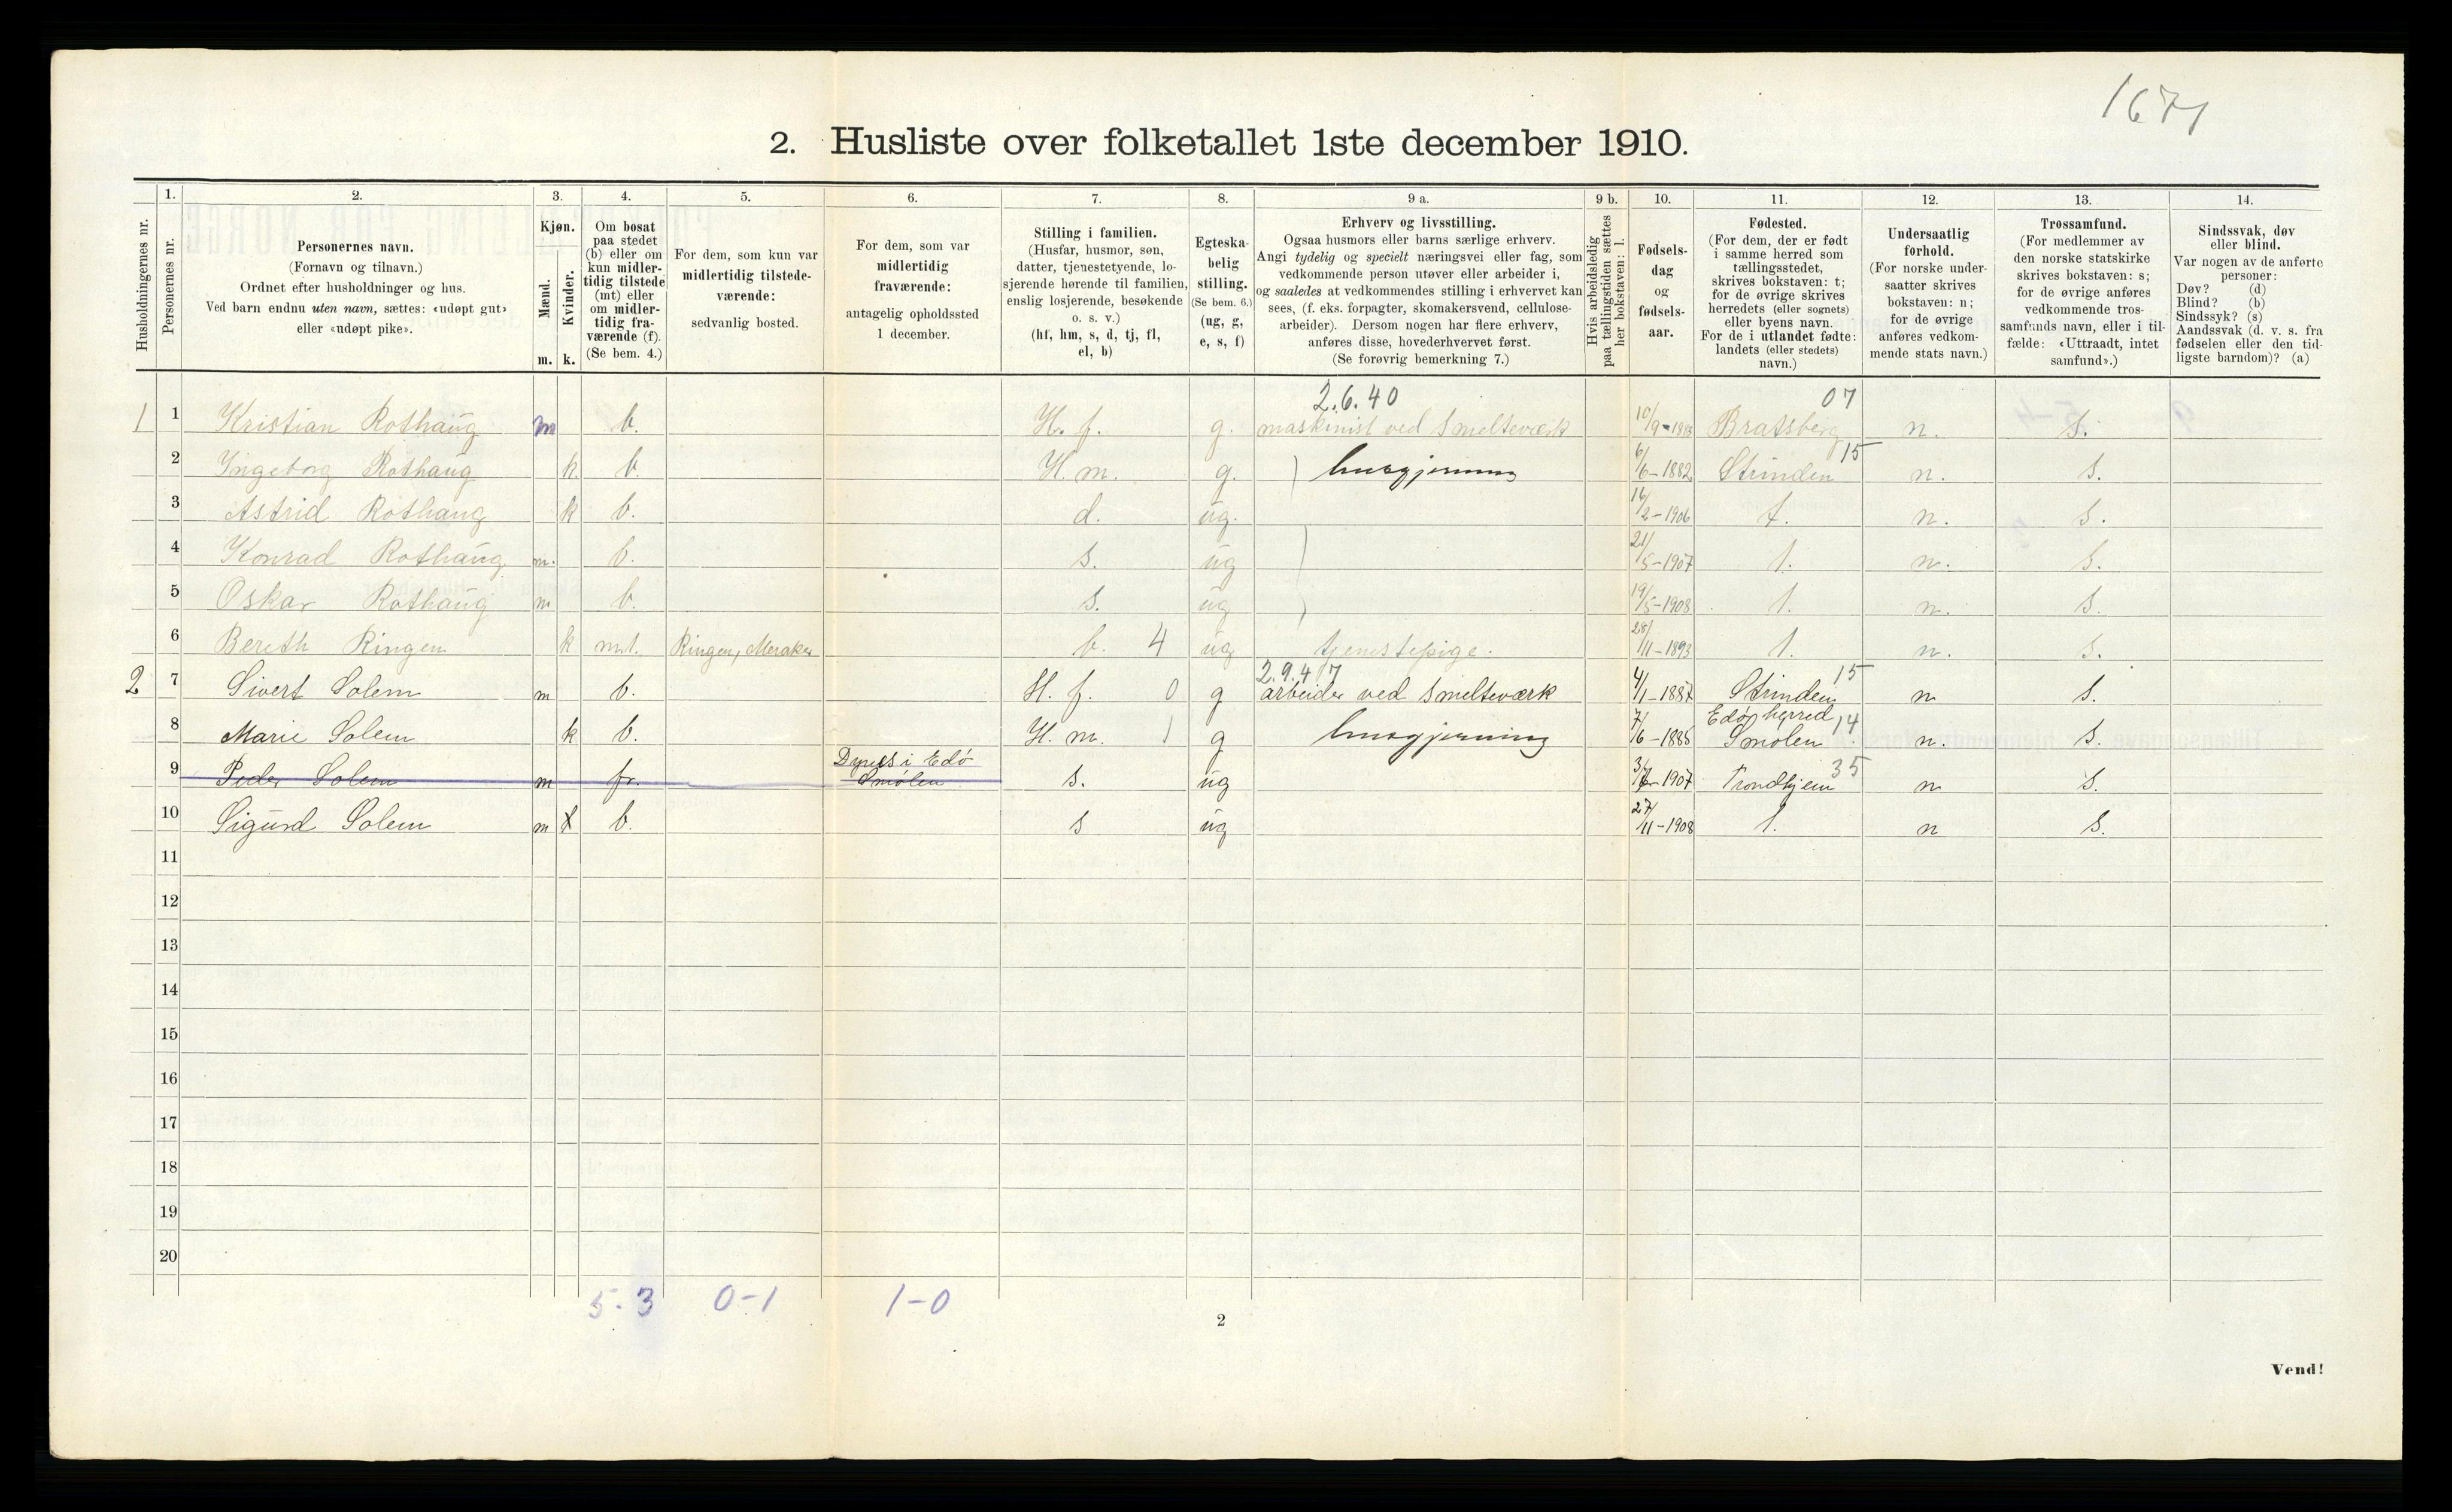 1671
2. Husliste over folketallet 1ste december 1910.
Husholdningernes nr.
1.
Personernes nr.
2.
Personernes navn.
(Fornavn og tilnavn.)
Ordnet efter husholdninger og hus.
Ved barn endnu uten navn, sættes: «udøpt gut»
eller «udøpt pike».
3.
Kjøn.
Mænd.
Kvinder.
m. k.
4.
Om bosat
paa stedet
(b) eller om
kun midler-
tidig tilstede
(mt) eller
om midler-
tidig fra-
værende (f).
(Se bem. 4.)
5.
For dem, som kun var
midlertidig tilstede-
værende:
sedvanlig bosted.
6.
For dem, som var
midlertidig
fraværende:
antagelig opholdssted
1 december.
7.
Stilling i familien.
(Husfar, husmor, søn,
datter, tjenestetyende, lo-
sjerende hørende til familien,
enslig losjerende, besøkende
o. s. v.)
(hf, hm, s, d, tj, fl,
el, b)
8.
Egteska-
belig
stilling.
(Se bem. 6.)
(ug, g,
e, s, f)
9 a.
Erhverv og livsstilling.
Ogsaa husmors eller barns særlige erhverv.
Angi tydelig og specielt næringsvei eller fag, som
vedkommende person utøver eller arbeider i,
og saaledes at vedkommendes stilling i erhvervet kan
sees, (f. eks. forpagter, skomakersvend, cellulose-
arbeider). Dersom nogen har flere erhverv,
anføres disse, hovederhvervet først.
(Se forøvrig bemerkning 7.)
9 b.
Hvis arbeidsledig
paa tællingstiden sættes
her bokstaven: l.
10.
Fødsels-
dag
og
fødsels-
aar.
11.
Fødested.
(For dem, der er født
i samme herred som
tællingsstedet,
skrives bokstaven: t;
for de øvrige skrives
herredets (eller sognets)
eller byens navn.
For de i utlandet fødte:
landets (eller stedets)
navn.)
12.
Undersaatlig
forhold.
(For norske under-
saatter skrives
bokstaven: n;
for de øvrige
anføres vedkom-
mende stats navn.)
13.
Trossamfund.
(For medlemmer av
den norske statskirke
skrives bokstaven: s;
for de øvrige anføres
vedkommende tros-
samfunds navn, eller i til-
fælde: «Uttraadt, intet
samfund».)
14.
Sindssvak, døv
eller blind.
Var nogen av de anførte
personer:
Døv? (d)
Blind? (b)
Sindssyk? (s)
Aandssvak (d. v. s. fra
fødselen eller den tid-
ligste barndom)? (a)
2.6.40 07
1 1 Kristian Rothaug m b. H. f. g. maskinist ved Smelteverk Bratsberg n. S.
15
2 Ingeborg Rothaug k. b. H. m. g. husgjerning 6/6-1882 Strinden n. S.
3 Astrid Rothaug k b. d. ug. 16/2-1906 t. n. S.
4 Konrad Rothaug m. b. s. ug 21/5-1907 t. n. S.
5 Oskar Rothaug m b. s. ug 19/5-1908 t. n. S.
6 Bereth Ringen k m.t. Ringen, Meraker b. 4 ug tjenestepige. 28/11-1893 t. n. S.
2.9.47 15
2 7 Sivert Solem m b. H. f. 0 g arbeider ved Smelteværk 4/1-1887 Strinden n S.
Edø herred 14
8 Marie Solem k b. H. m. 1 g husgjerning 7/6-1885 Smølen n. S.
Dyrnes i Edø 35
9 Peder Solem m fr. Smølen s. ug Trondhjem n S.
10 Sigurd Solem m k b. s ug 27/11-1908 t. n S.
11
12
13
14
15
16
17
18
19
20
5-3 0-1 1-0
2
Vend!